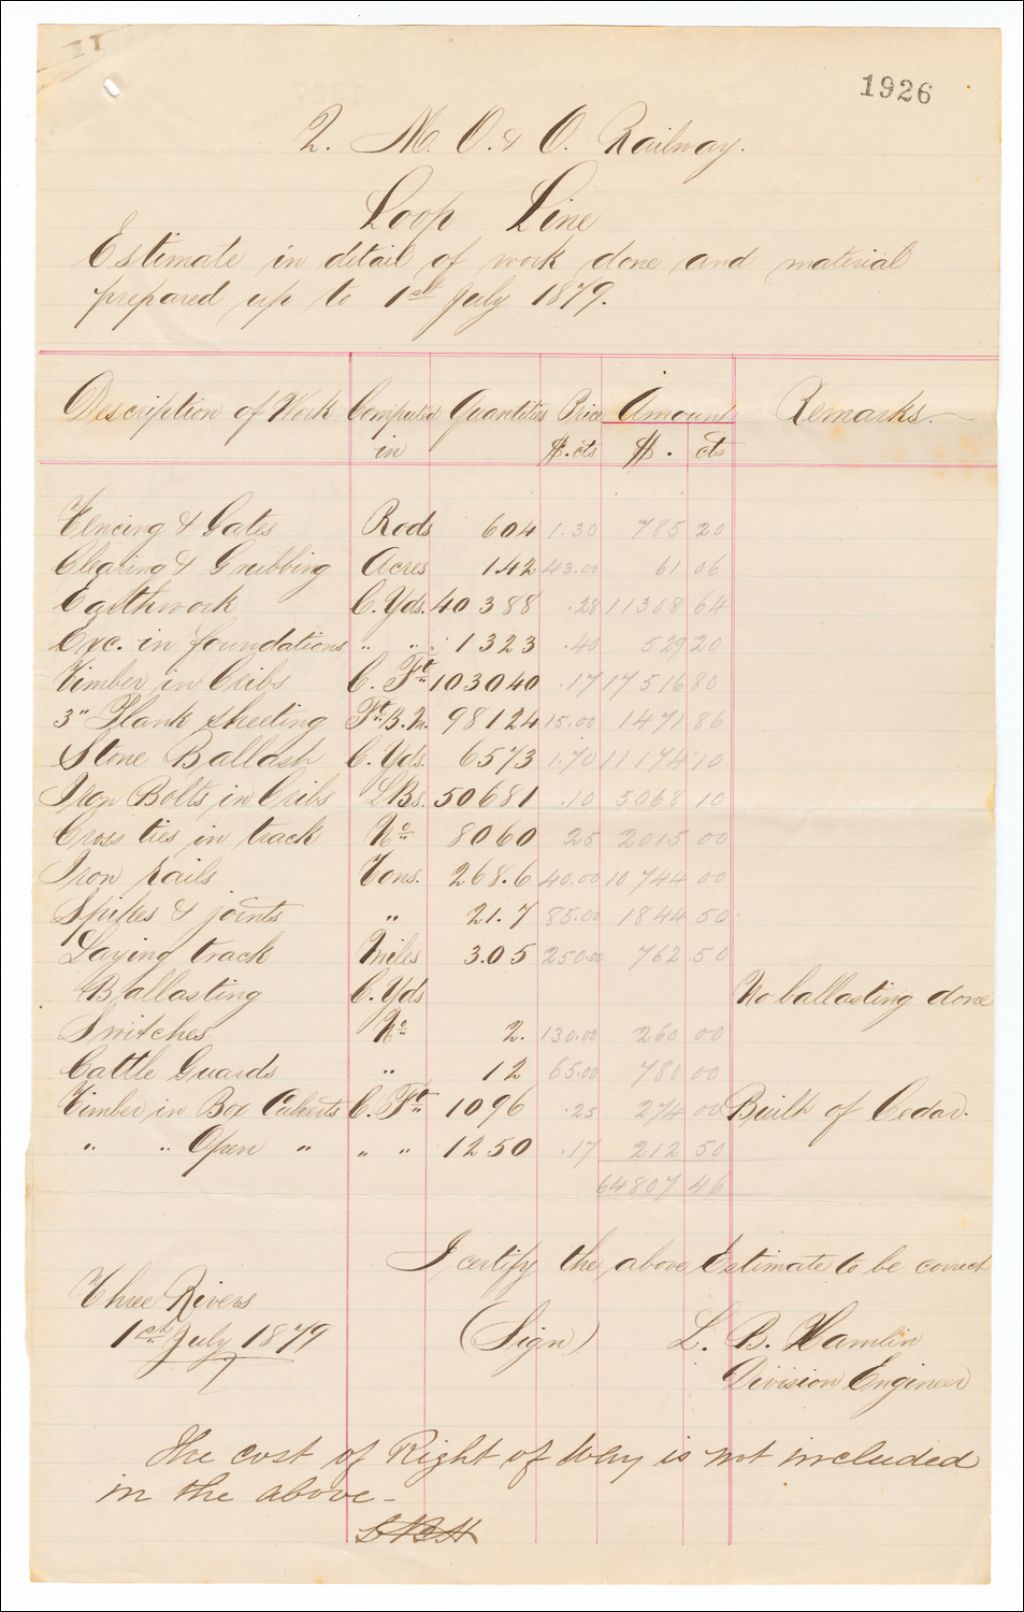 1926
Q. M. O. & O. Railway.
Loop Line
Estimate in detail of work done and material
prepared up to 1st July 1879.
Description of Work Computed in Quantities Price $.cts Amount $. cts Remarks.
Fencing & Gates Rods 604 1.30 785 20
Clearing & Grubbing Acres 1.42 43.00 61 06
Earthwork C. Yds. 40388 .28 11308 64
Exc. in foundations " " 1323 .40 529 20
Timber in Cribs C. Ft 103040 .17 17516 80
3" Plank sheeting Ft. B.M. 98124 15.00 1471 86
Stone Ballast C. Yds. 6573 1.70 11174 10
Iron Bolts in Cribs LBs. 50681 .10 5068 10
Cross ties in track No 8060 25 2015 00
Iron Rails Tons. 268.6 40.00 10744 00
Spikes & joints " 21.7 85.00 1844 50
Laying track Miles 3.05 250.00 762 50
Ballasting C. Yds No ballasting done
Switches No 2. 130.00 260 00
Cattle Guards " 12 65.00 780 00
Timber in Box Culverts C. Ft 1096 .25 274 00 Built of Cedar.
" " Open " " " 1250 .17 212 50
64807 46
I certify the above Estimate to be correct
Three Rivers
1st July 1879 (Sign) L. B. Hamlin
Division Engineer
The cost of Right of Way is not included
in the above -
LBH